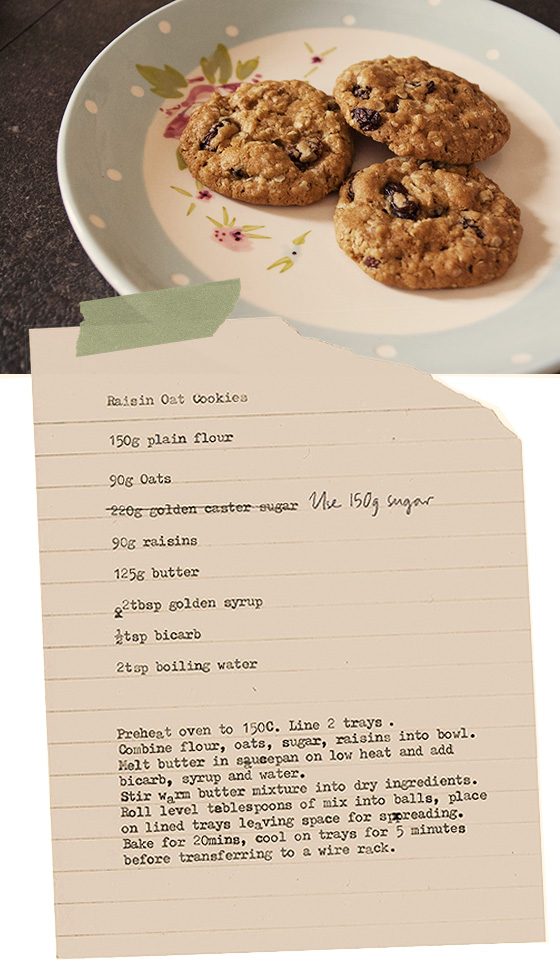 Raisin Oat Cookies
150g plain flour
90g Oats
220g golden caster sugar Use 150g sugar
90g raisins
125g butter
2tbsp golden syrup
½tsp bicarb
2tsp boiling water
Preheat oven to 150C. Line 2 trays .
Combine flour, oats, sugar, raisins into bowl.
Melt butter in saucepan on low heat and add
bicarb, syrup and water.
Stir warm butter mixture into dry ingredients.
Roll level tablespoons of mix into balls, place
on lined trays leaving space for spreading.
Bake for 20mins, cool on trays for 5 minutes
before transferring to a wire rack.